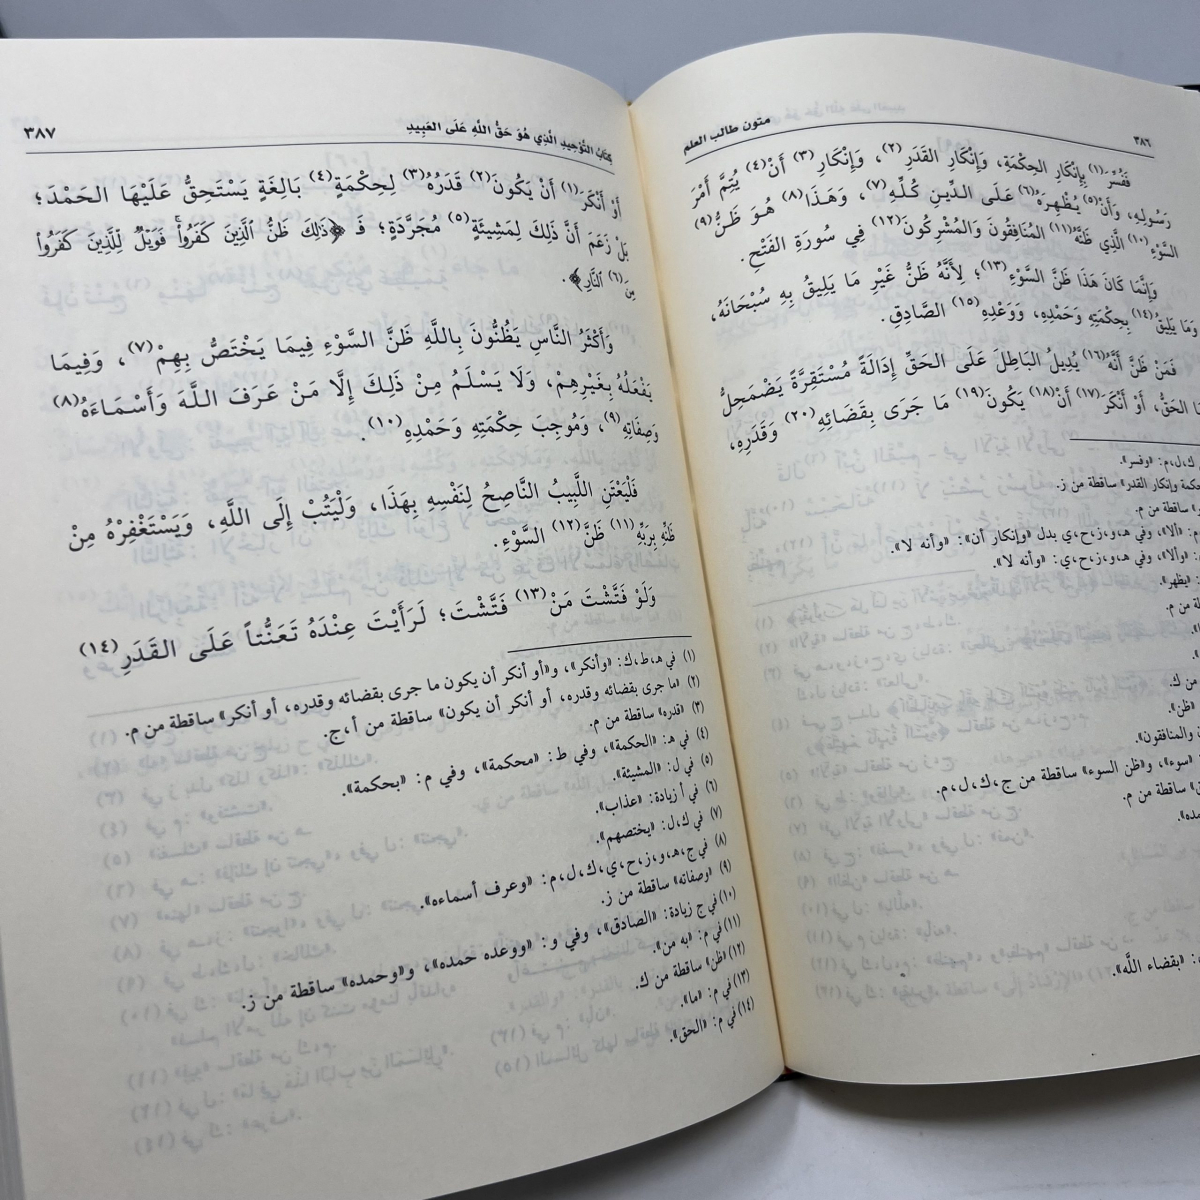 ٣٨٦
متون طالب العلم
فَفُسِّرَ(١) بِإِنْكَارِ الحِكْمَةِ، وَإِنْكَارِ القَدَرِ(٢)، وَإِنْكَارِ(٣) أَنْ(٤) يُتِمَّ أَمْرَ
رَسُولِهِ، وَأَنْ(٥) يُظْهِرَهُ(٦) عَلَى الدِّينِ كُلِّهِ(٧)، وَهَذَا(٨) هُوَ ظَنُّ(٩)
السَّوْءِ(١٠) الَّذِي ظَنَّهُ(١١) المُنَافِقُونَ وَالمُشْرِكُونَ(١٢) فِي سُورَةِ الفَتْحِ.
وَإِنَّمَا كَانَ هَذَا ظَنَّ السَّوْءِ(١٣)؛ لِأَنَّهُ ظَنُّ غَيْرِ مَا يَلِيقُ بِهِ سُبْحَانَهُ،
وَمَا يَلِيقُ(١٤) بِحِكْمَتِهِ وَحَمْدِهِ، وَوَعْدِهِ(١٥) الصَّادِقِ.
فَمَنْ ظَنَّ أَنَّهُ(١٦) يُدِيلُ البَاطِلَ عَلَى الحَقِّ إِدَالَةً مُسْتَقِرَّةً يَضْمَحِلُّ
الحَقُّ، أَوْ أَنْكَرَ(١٧) أَنْ(١٨) يَكُونَ(١٩) مَا جَرَى بِقَضَائِهِ(٢٠) وَقَدَرِهِ،
ك،ل،م: «وفسر».
وإنكار القدر» ساقطة من ز.
ساقطة من م.
م: «ألا»، وفي هـ،و،ز،ح،ي بدل «وإنكار أن»: «وأنه لا».
«وألا»، وفي هـ،و،ز،ح،ي: «وأنه لا».
«يظهر».
من م.
من ك.
«ظن».
والمنافقون».
«سوء»، و«ظن السوء» ساقطة من ج،ك،ل،م.
ساقطة من م.
«بقضاء الله».
كِتَابُ التَّوْحِيدِ الَّذِي هُوَ حَقُّ اللَّهِ عَلَى العَبِيدِ
٣٨٧
أَوْ أَنْكَرَ(١) أَنْ يَكُونَ(٢) قَدَرُهُ(٣) لِحِكْمَةٍ(٤) بَالِغَةٍ يَسْتَحِقُّ عَلَيْهَا الحَمْدَ؛
بَلْ زَعَمَ أَنَّ ذَلِكَ لِمَشِيئَةٍ(٥) مُجَرَّدَةٍ؛ فَـ ﴿ذَلِكَ ظَنُّ الَّذِينَ كَفَرُوا فَوَيْلٌ لِلَّذِينَ كَفَرُوا
مِنَ(٦) النَّارِ﴾.
وَأَكْثَرُ النَّاسِ يَظُنُّونَ بِاللَّهِ ظَنَّ السَّوْءِ فِيمَا يَخْتَصُّ بِهِمْ(٧)، وَفِيمَا
يَفْعَلُهُ بِغَيْرِهِمْ، وَلَا يَسْلَمُ مِنْ ذَلِكَ إِلَّا مَنْ عَرَفَ اللَّهَ وَأَسْمَاءَهُ(٨)
وَصِفَاتِهِ(٩)، وَمُوجِبَ حِكْمَتِهِ وَحَمْدِهِ(١٠).
فَلْيَعْتَنِ اللَّبِيبُ النَّاصِحُ لِنَفْسِهِ بِهَذَا، وَلْيَتُبْ إِلَى اللَّهِ، وَيَسْتَغْفِرْهُ مِنْ
ظَنِّهِ بِرَبِّهِ(١١) ظَنَّ(١٢) السَّوْءِ.
وَلَوْ فَتَّشْتَ مَنْ(١٣) فَتَّشْتَ؛ لَرَأَيْتَ عِنْدَهُ تَعَنُّتاً عَلَى القَدَرِ(١٤)
(١) في هـ،ط،ك: «وأنكر»، و«أو أنكر أن يكون ما جرى بقضائه وقدره، أو أنكر» ساقطة من م.
(٢) «ما جرى بقضائه وقدره، أو أنكر أن يكون» ساقطة من أ،ج.
(٣) «قدره» ساقطة من م.
(٤) في هـ: «الحكمة»، وفي ط: «محكمة»، وفي م: «بحكمة».
(٥) في ل: «المشيئة».
(٦) في أ زيادة: «عذاب».
(٧) في ك،ل: «يختصهم».
(٨) في ج،هـ،و،ز،ح،ي،ك،ل،م: «وعرف أسماءه».
(٩) «وصفاته» ساقطة من ز.
(١٠) في ج زيادة: «الصادق»، وفي و: «ووعده حمده»، و«وحمده» ساقطة من ز.
(١١) في م: «به من».
(١٢) «ظن» ساقطة من ك.
(١٣) في م: «ما».
(١٤) في م: «الحق».